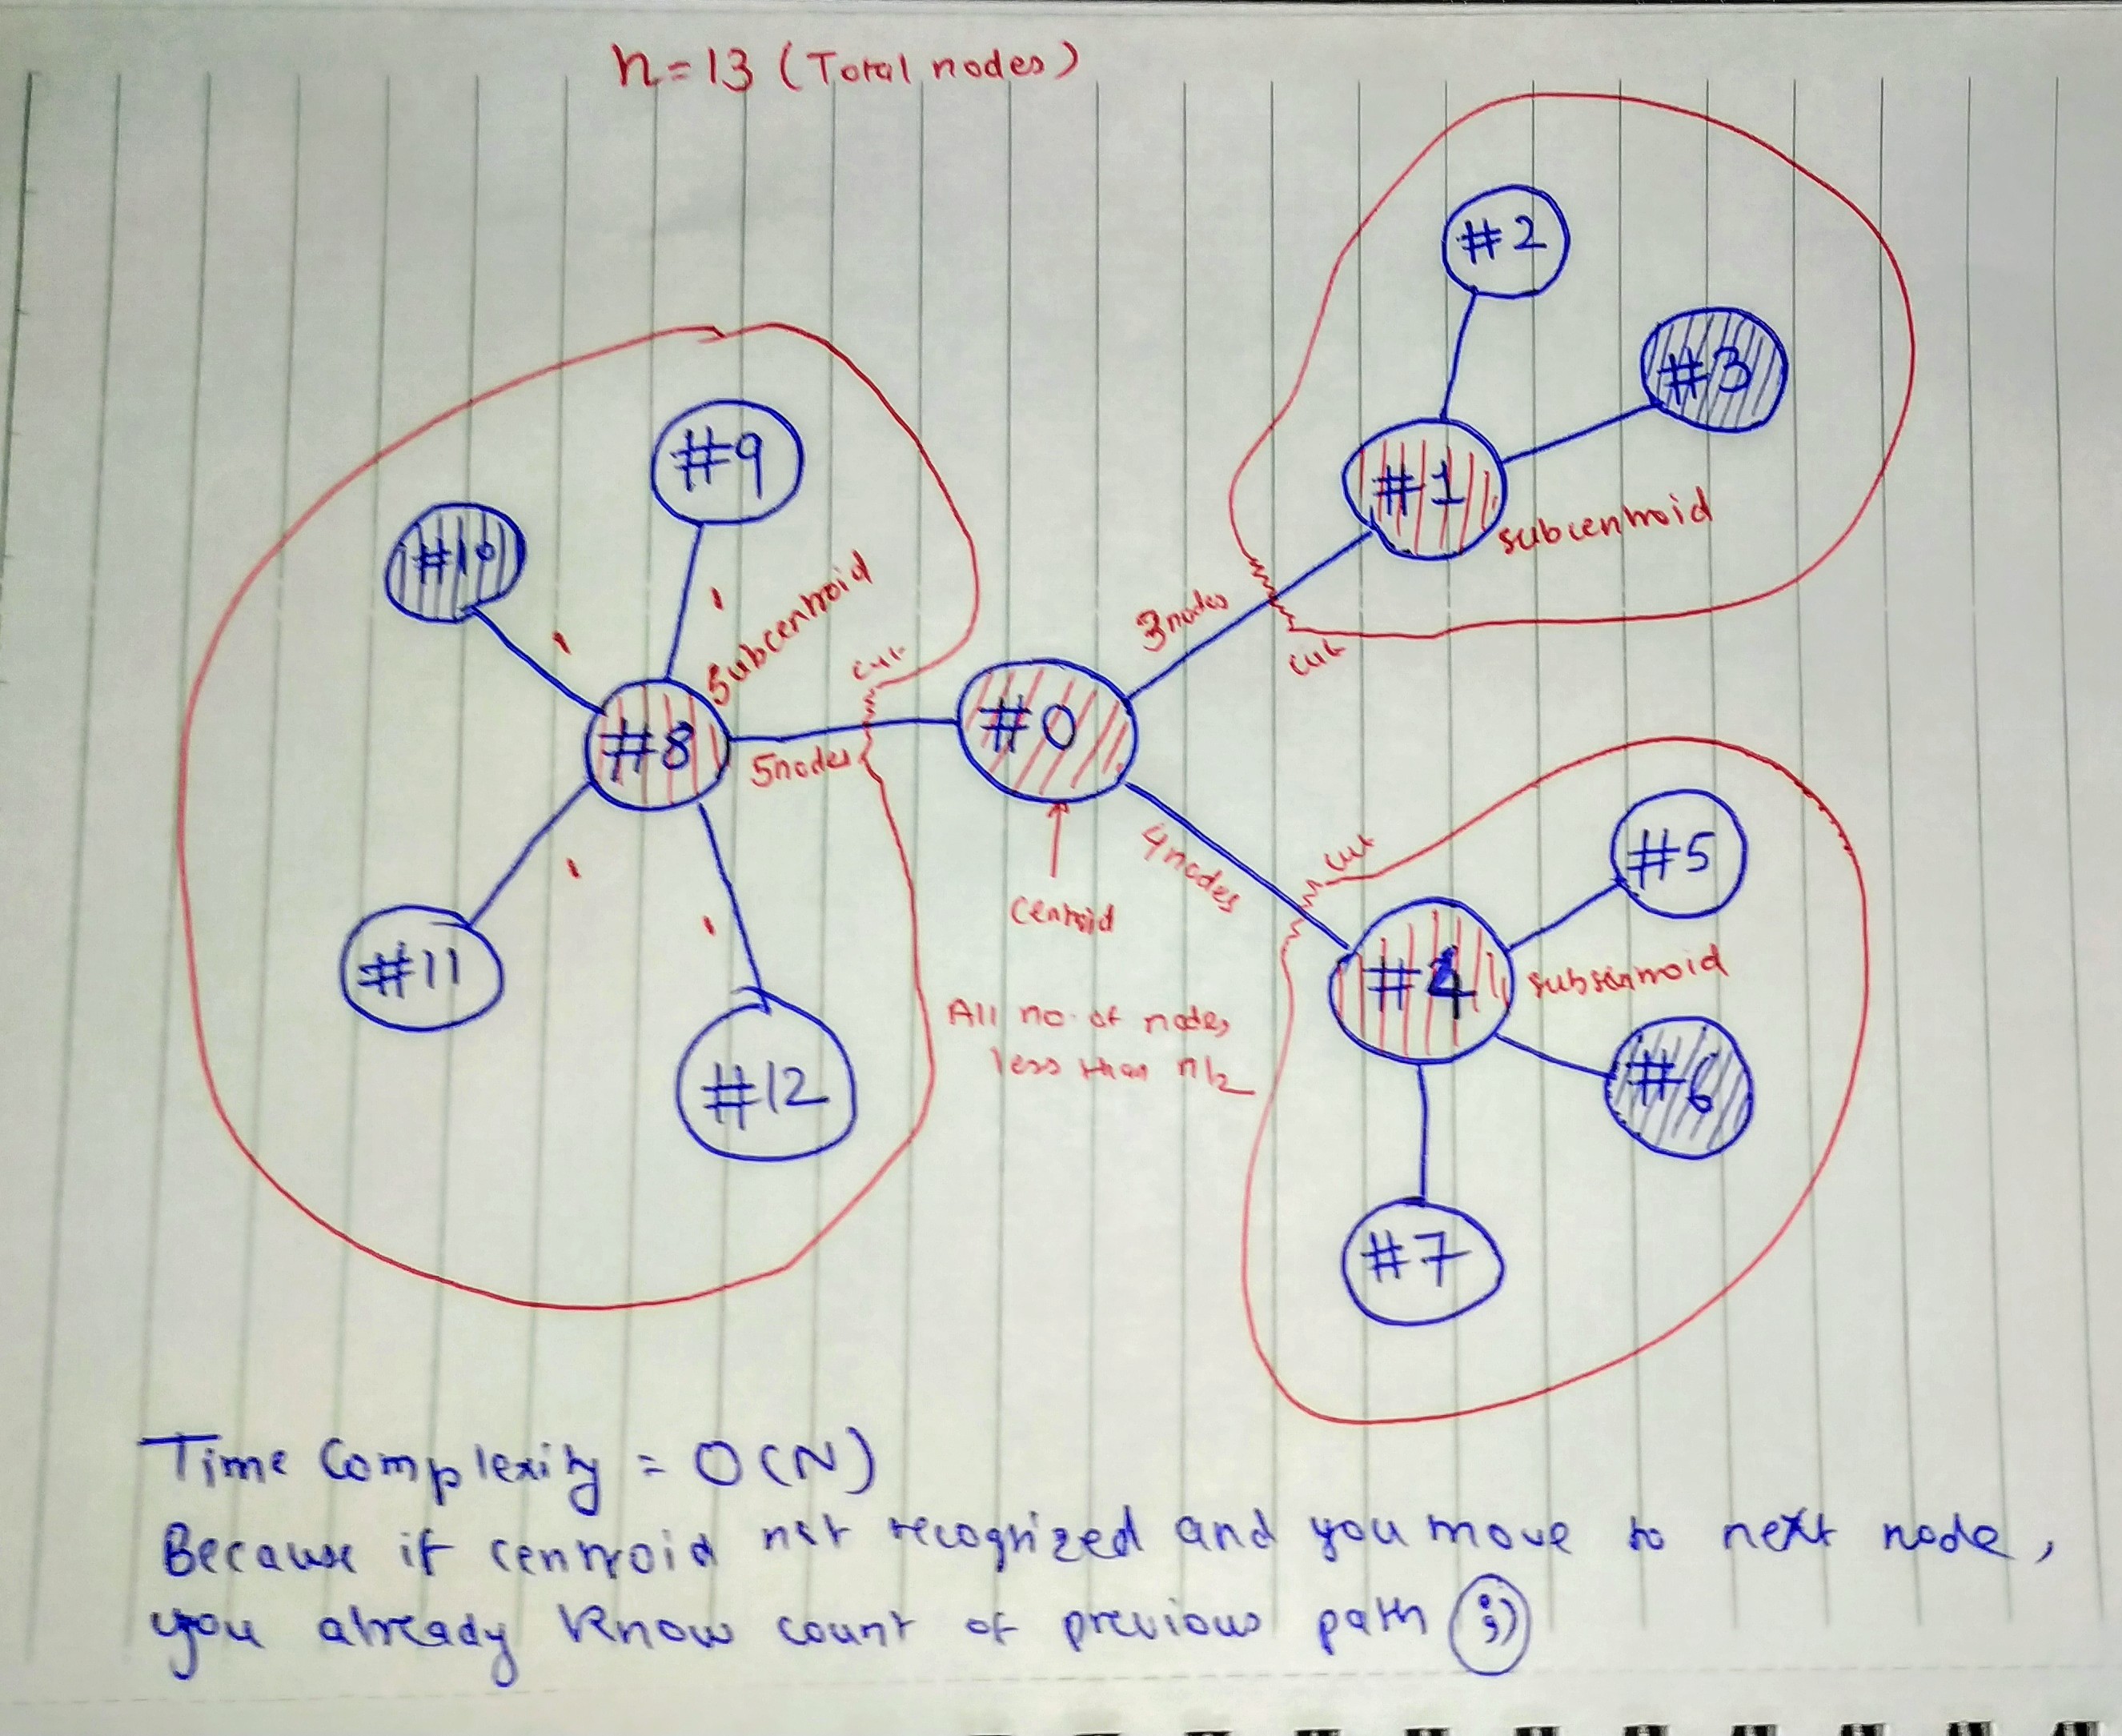 n=13 (Total nodes)
#2
#3
#1
subcentroid
#9
#10
Subcentroid
cut
3nodes
cut
#8
5nodes
#0
centroid
4nodes
cut
#5
#4
subsentroid
#6
#7
#11
#12
All no. of nodes
less than n/2
Time Complexity = O(N)
Because if centroid not recognized and you move to next node,
you already know count of previous path ;)